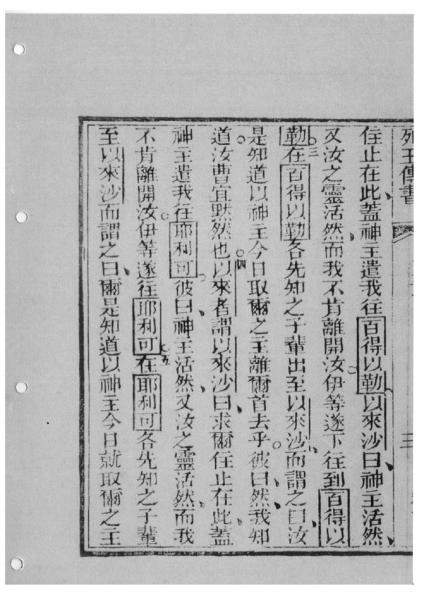 列王傳書
住止在此蓋神主遣我往百得以勒以來沙曰神主活然
又汝之靈活然而我不肯離開汝伊等遂下往到百得以
勒三在百得以勒各先知之子輩出至以來沙而謂之曰汝
是知道以神主今日取爾之主離爾首去乎彼曰然我知
道汝曹宜默然也四以來者謂以來沙曰求爾住止在此蓋
神主遣我往耶利可彼曰神主活然又汝之靈活然而我
不肯離開汝伊等遂往耶利可五在耶利可各先知之子輩
至以來沙而謂之曰爾是知道以神主今日就取爾之主